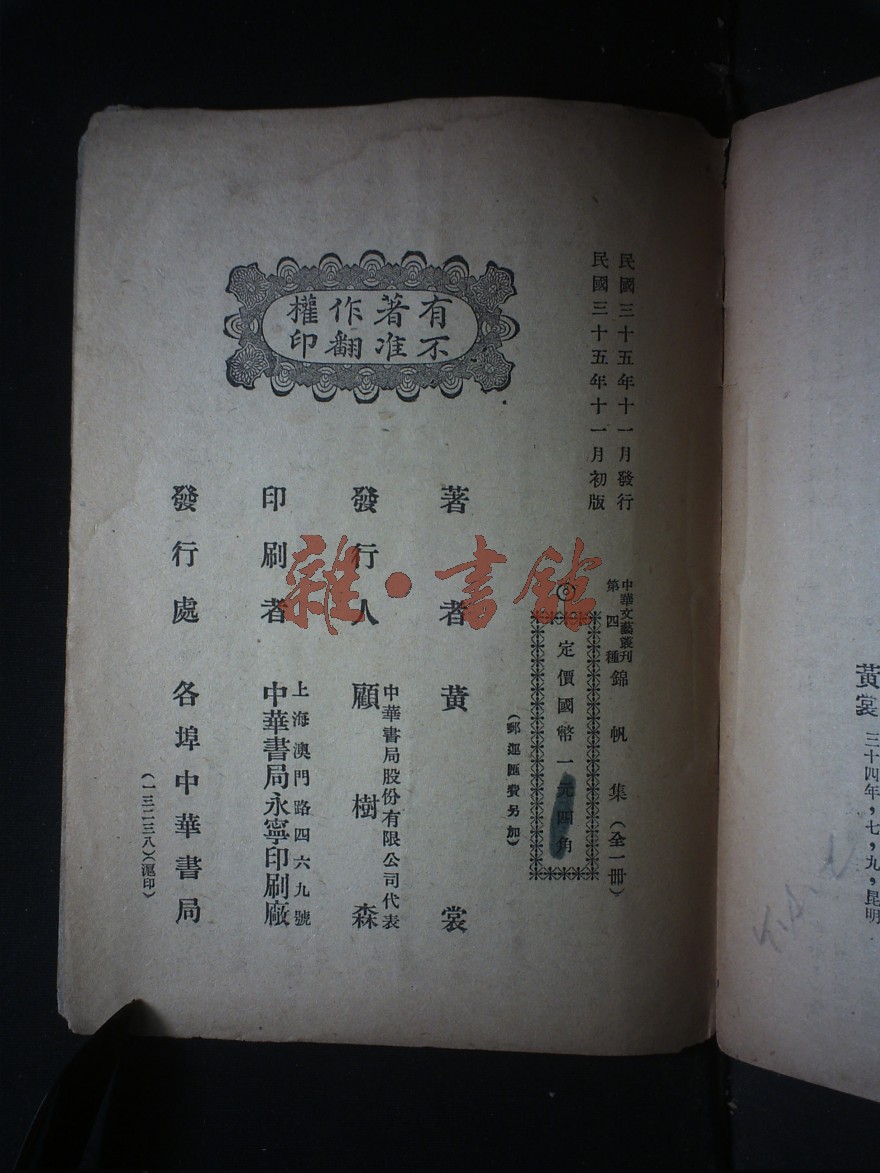 民國三十五年十一月發行
民國三十五年十一月初版
中華文藝叢刊
第四種
錦帆集(全一冊)
定價國幣一元四角
(郵運匯費另加)
有著作權
不准翻印
著者 黃裳
發行人 顧樹森
中華書局股份有限公司代表
印刷者 中華書局永寧印刷廠
上海澳門路四六九號
發行處 各埠中華書局
(一三二三八)(滬印)
雜·書館
黃裳 三十四年,七,九,昆明